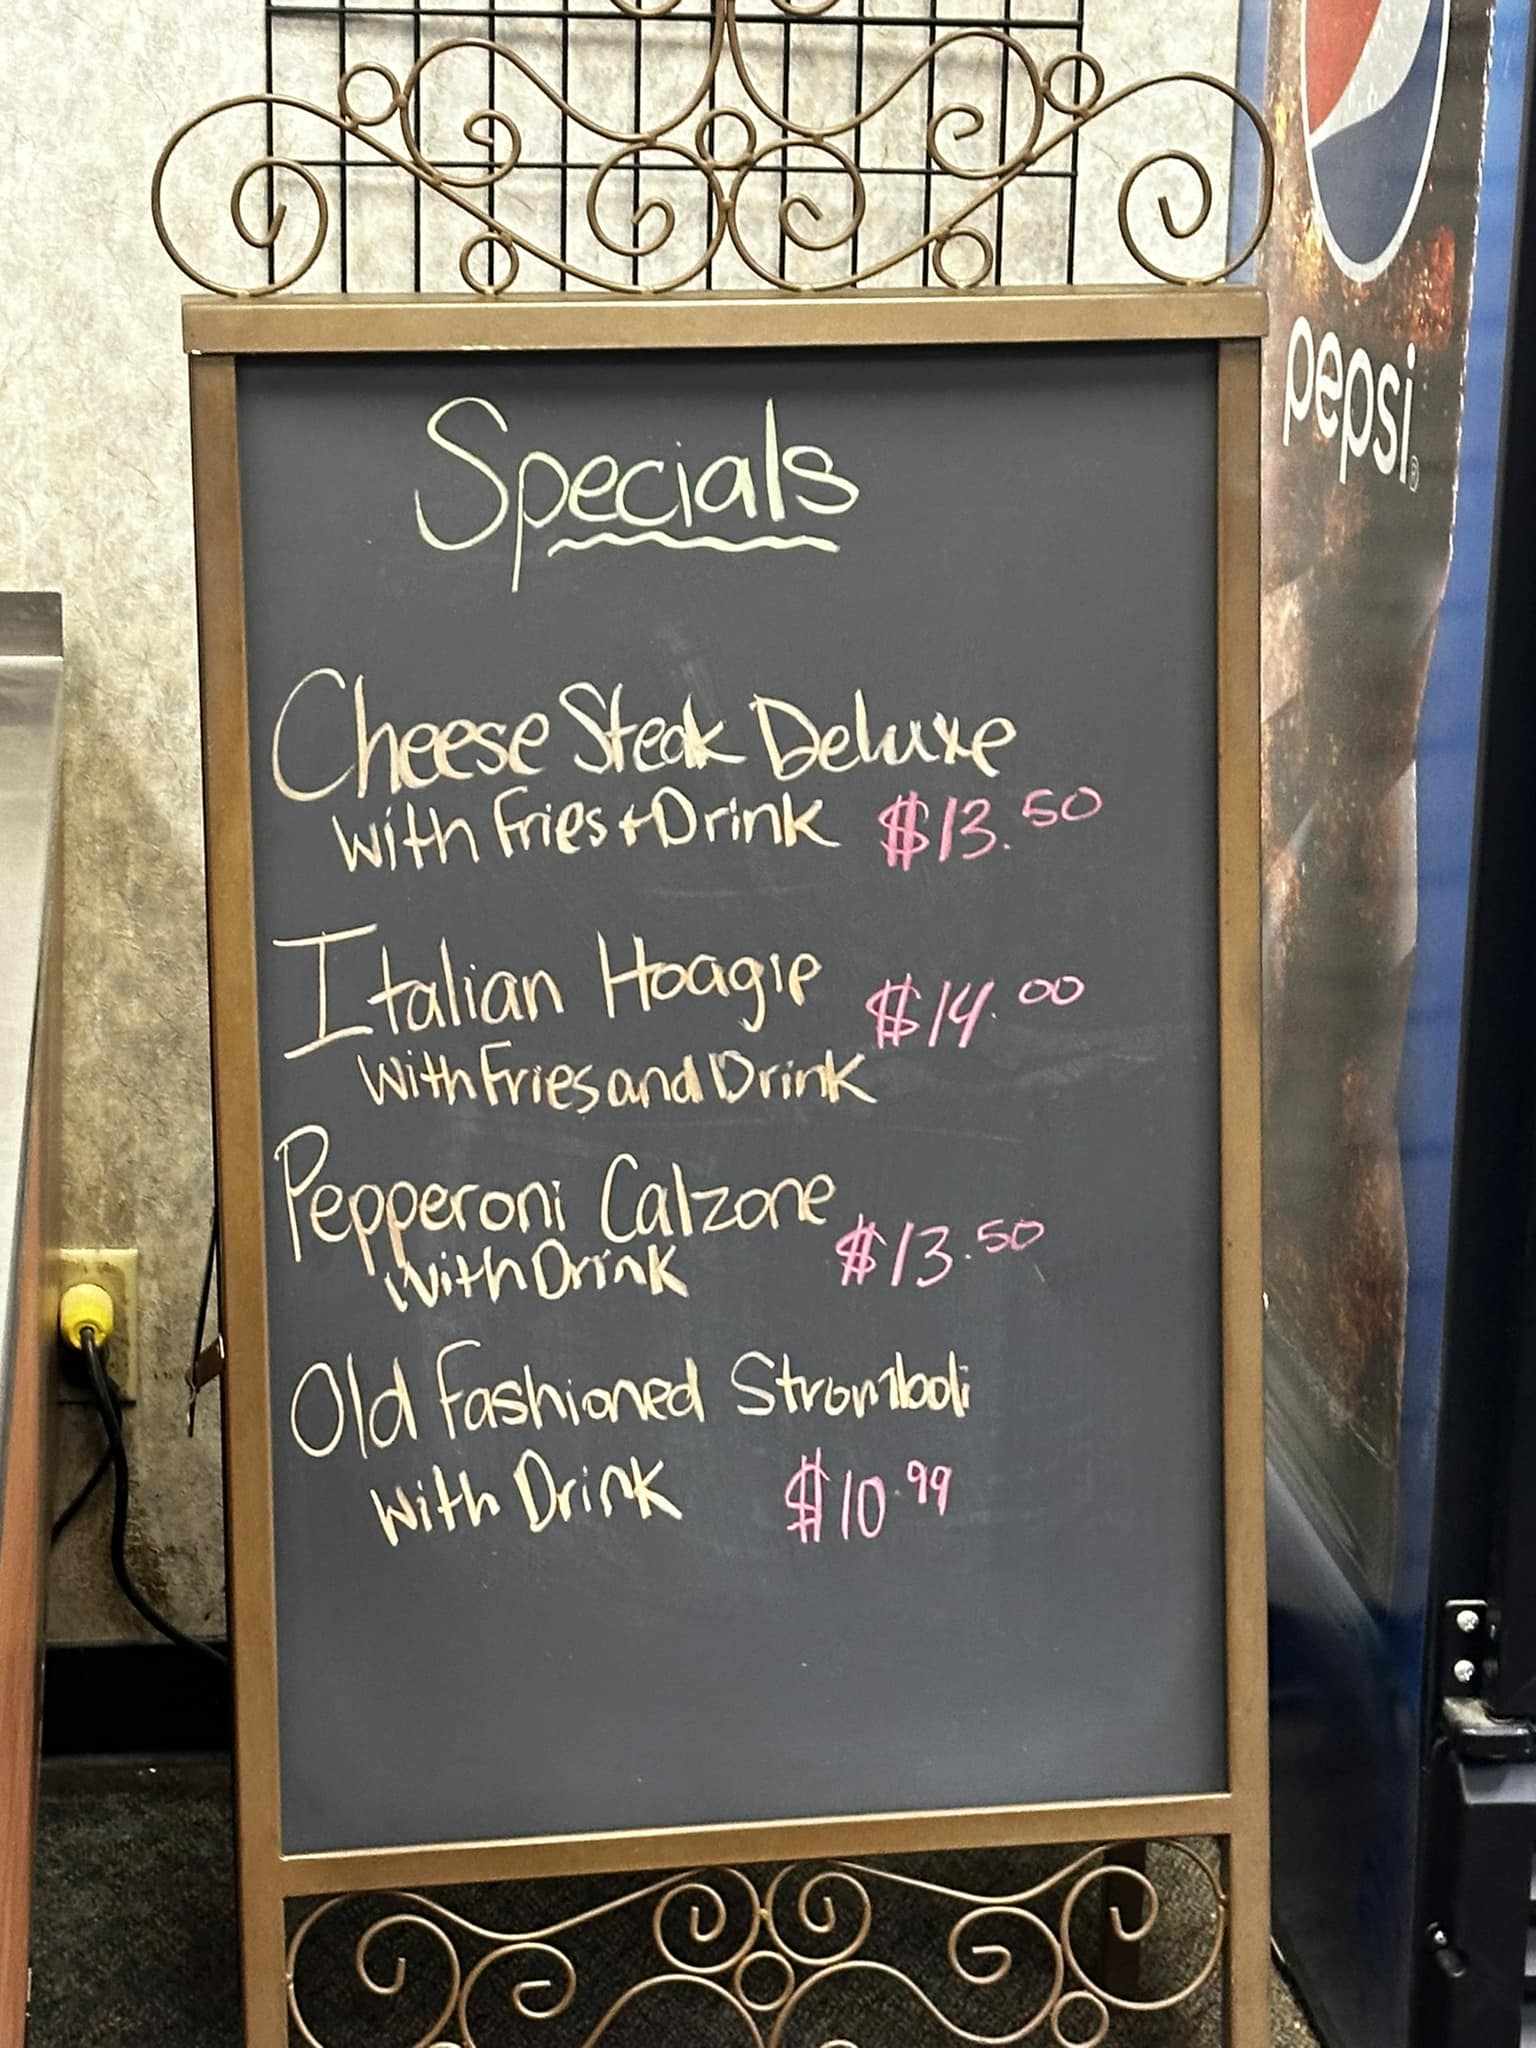 pepsi
Specials
Cheese Steak Deluxe
with Fries + Drink $13.50
Italian Hoagie $14.00
with Fries and Drink
Pepperoni Calzone
with Drink $13.50
Old Fashioned Stromboli
with Drink $10.99